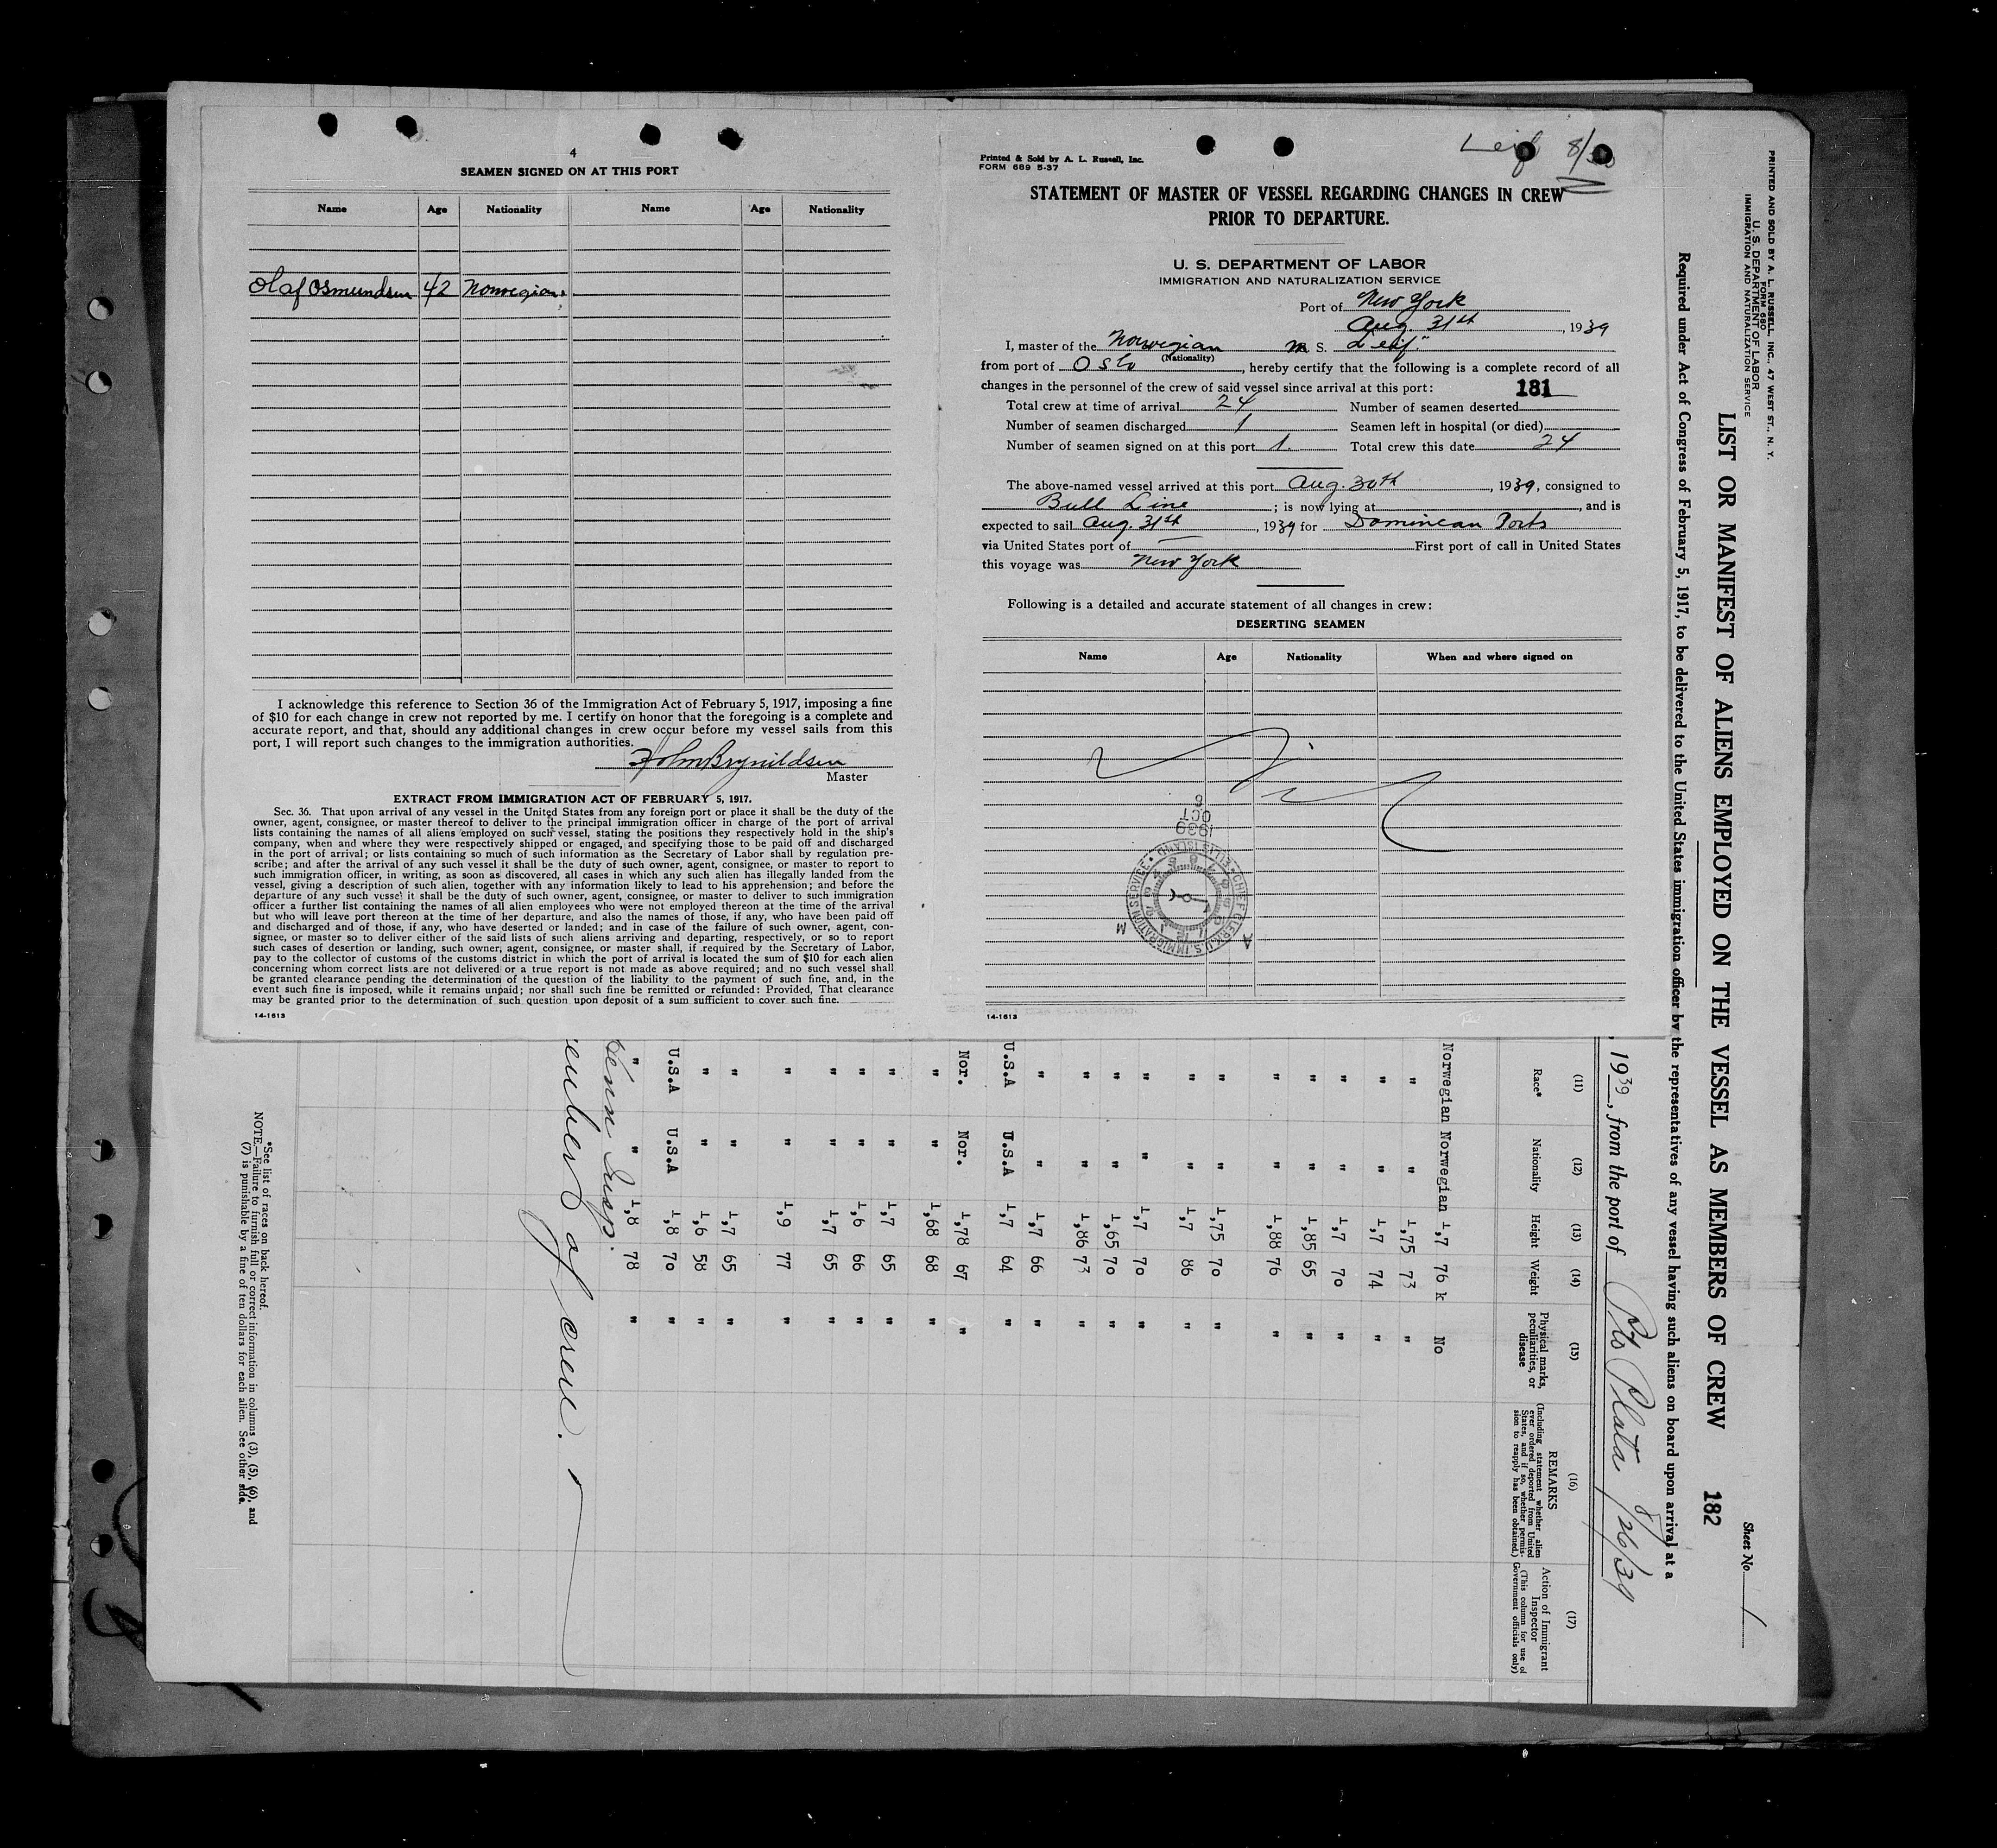 4
SEAMEN SIGNED ON AT THIS PORT
Name Age Nationality Name Age Nationality
Olaf Osmundsen 42 Norwegian.
I acknowledge this reference to Section 36 of the Immigration Act of February 5, 1917, imposing a fine
of $10 for each change in crew not reported by me. I certify on honor that the foregoing is a complete and
accurate report, and that, should any additional changes in crew occur before my vessel sails from this
port, I will report such changes to the immigration authorities.
Brynildsen
Master
EXTRACT FROM IMMIGRATION ACT OF FEBRUARY 5, 1917.
Sec. 36. That upon arrival of any vessel in the United States from any foreign port or place it shall be the duty of the
owner, agent, consignee, or master thereof to deliver to the principal immigration officer in charge of the port of arrival
lists containing the names of all aliens employed on such vessel, stating the positions they respectively hold in the ship's
company, when and where they were respectively shipped or engaged, and specifying those to be paid off and discharged
in the port of arrival; or lists containing so much of such information as the Secretary of Labor shall by regulation pre-
scribe; and after the arrival of any such vessel it shall be the duty of such owner, agent, consignee, or master to report to
such immigration officer, in writing, as soon as discovered, all cases in which any such alien has illegally landed from the
vessel, giving a description of such alien, together with any information likely to lead to his apprehension; and before the
departure of any such vessel it shall be the duty of such owner, agent, consignee, or master to deliver to such immigration
officer a further list containing the names of all alien employees who were not employed thereon at the time of the arrival
but who will leave port thereon at the time of her departure, and also the names of those, if any, who have been paid off
and discharged and of those, if any, who have deserted or landed; and in case of the failure of such owner, agent, con-
signee, or master so to deliver either of the said lists of such aliens arriving and departing, respectively, or so to report
such cases of desertion or landing, such owner, agent, consignee, or master shall, if required by the Secretary of Labor,
pay to the collector of customs of the customs district in which the port of arrival is located the sum of $10 for each alien
concerning whom correct lists are not delivered or a true report is not made as above required; and no such vessel shall
be granted clearance pending the determination of the question of the liability to the payment of such fine, and, in the
event such fine is imposed, while it remains unpaid; nor shall such fine be remitted or refunded: Provided, That clearance
may be granted prior to the determination of such question upon deposit of a sum sufficient to cover such fine.
14-1613
Leif 8/30
Printed & Sold by A. L. Russell, Inc.
FORM 689 5-37
STATEMENT OF MASTER OF VESSEL REGARDING CHANGES IN CREW
PRIOR TO DEPARTURE.
U. S. DEPARTMENT OF LABOR
IMMIGRATION AND NATURALIZATION SERVICE
Port of New York
Aug. 31st, 1939
I, master of the Norwegian M S. "Leif"
(Nationality)
from port of Oslo, hereby certify that the following is a complete record of all
changes in the personnel of the crew of said vessel since arrival at this port:
181
Total crew at time of arrival 24 Number of seamen deserted
Number of seamen discharged 1 Seamen left in hospital (or died)
Number of seamen signed on at this port 1. Total crew this date 24
The above-named vessel arrived at this port Aug. 30th, 1939, consigned to
Bull Line; is now lying at, and is
expected to sail Aug. 31st, 1939 for Dominican Ports
via United States port of — First port of call in United States
this voyage was New York
Following is a detailed and accurate statement of all changes in crew:
DESERTING SEAMEN
Name Age Nationality When and where signed on
1939
OCT
6
CHIEF CLERK, U.S. IMMIGRATION SERVICE • ELLIS ISLAND •
A M
14-1613
PRINTED AND SOLD BY A. L. RUSSELL, INC., 47 WEST ST., N. Y.
FORM 680
U. S. DEPARTMENT OF LABOR
IMMIGRATION AND NATURALIZATION SERVICE
Sheet No. 1
LIST OR MANIFEST OF ALIENS EMPLOYED ON THE VESSEL AS MEMBERS OF CREW 182
Required under Act of Congress of February 5, 1917, to be delivered to the United States immigration officer by the representatives of any vessel having such aliens on board upon arrival at a
, 1939, from the port of Pto Plata 8/26/39
(11) (12) (13) (14) (15) (16) (17)
Race* Nationality Height Weight Physical marks, peculiarities, or disease
REMARKS
(Including statement whether alien ever ordered deported from United States, and if so, whether permission to reapply has been obtained.)
Action of Immigrant Inspector
(This column for use of Government officials only)
Norwegian Norwegian 1,7 76 k No
" " 1,75 73 "
" " 1,7 74 "
" " 1,7 70 "
" " 1,85 65 "
" " 1,88 76 "
" " 1,75 70 "
" " 1,7 86 "
" " 1,7 70 "
" " 1,65 70 "
" " 1,86 73 "
" " 1,7 66 "
U.S.A U.S.A 1,7 64 "
Nor. Nor. 1,78 67 "
" " 1,68 68 "
" " 1,7 65 "
" " 1,6 66 "
" " 1,7 65 "
" " 1,9 77 "
" " 1,7 65 "
" " 1,6 58 "
U.S.A U.S.A 1,8 70 "
" " 1,8 78 "
Insp.
of crew.
*See list of races on back hereof.
NOTE.—Failure to furnish full or correct information in columns (3), (5), (6), and
(7) is punishable by a fine of ten dollars for each alien. See other side.